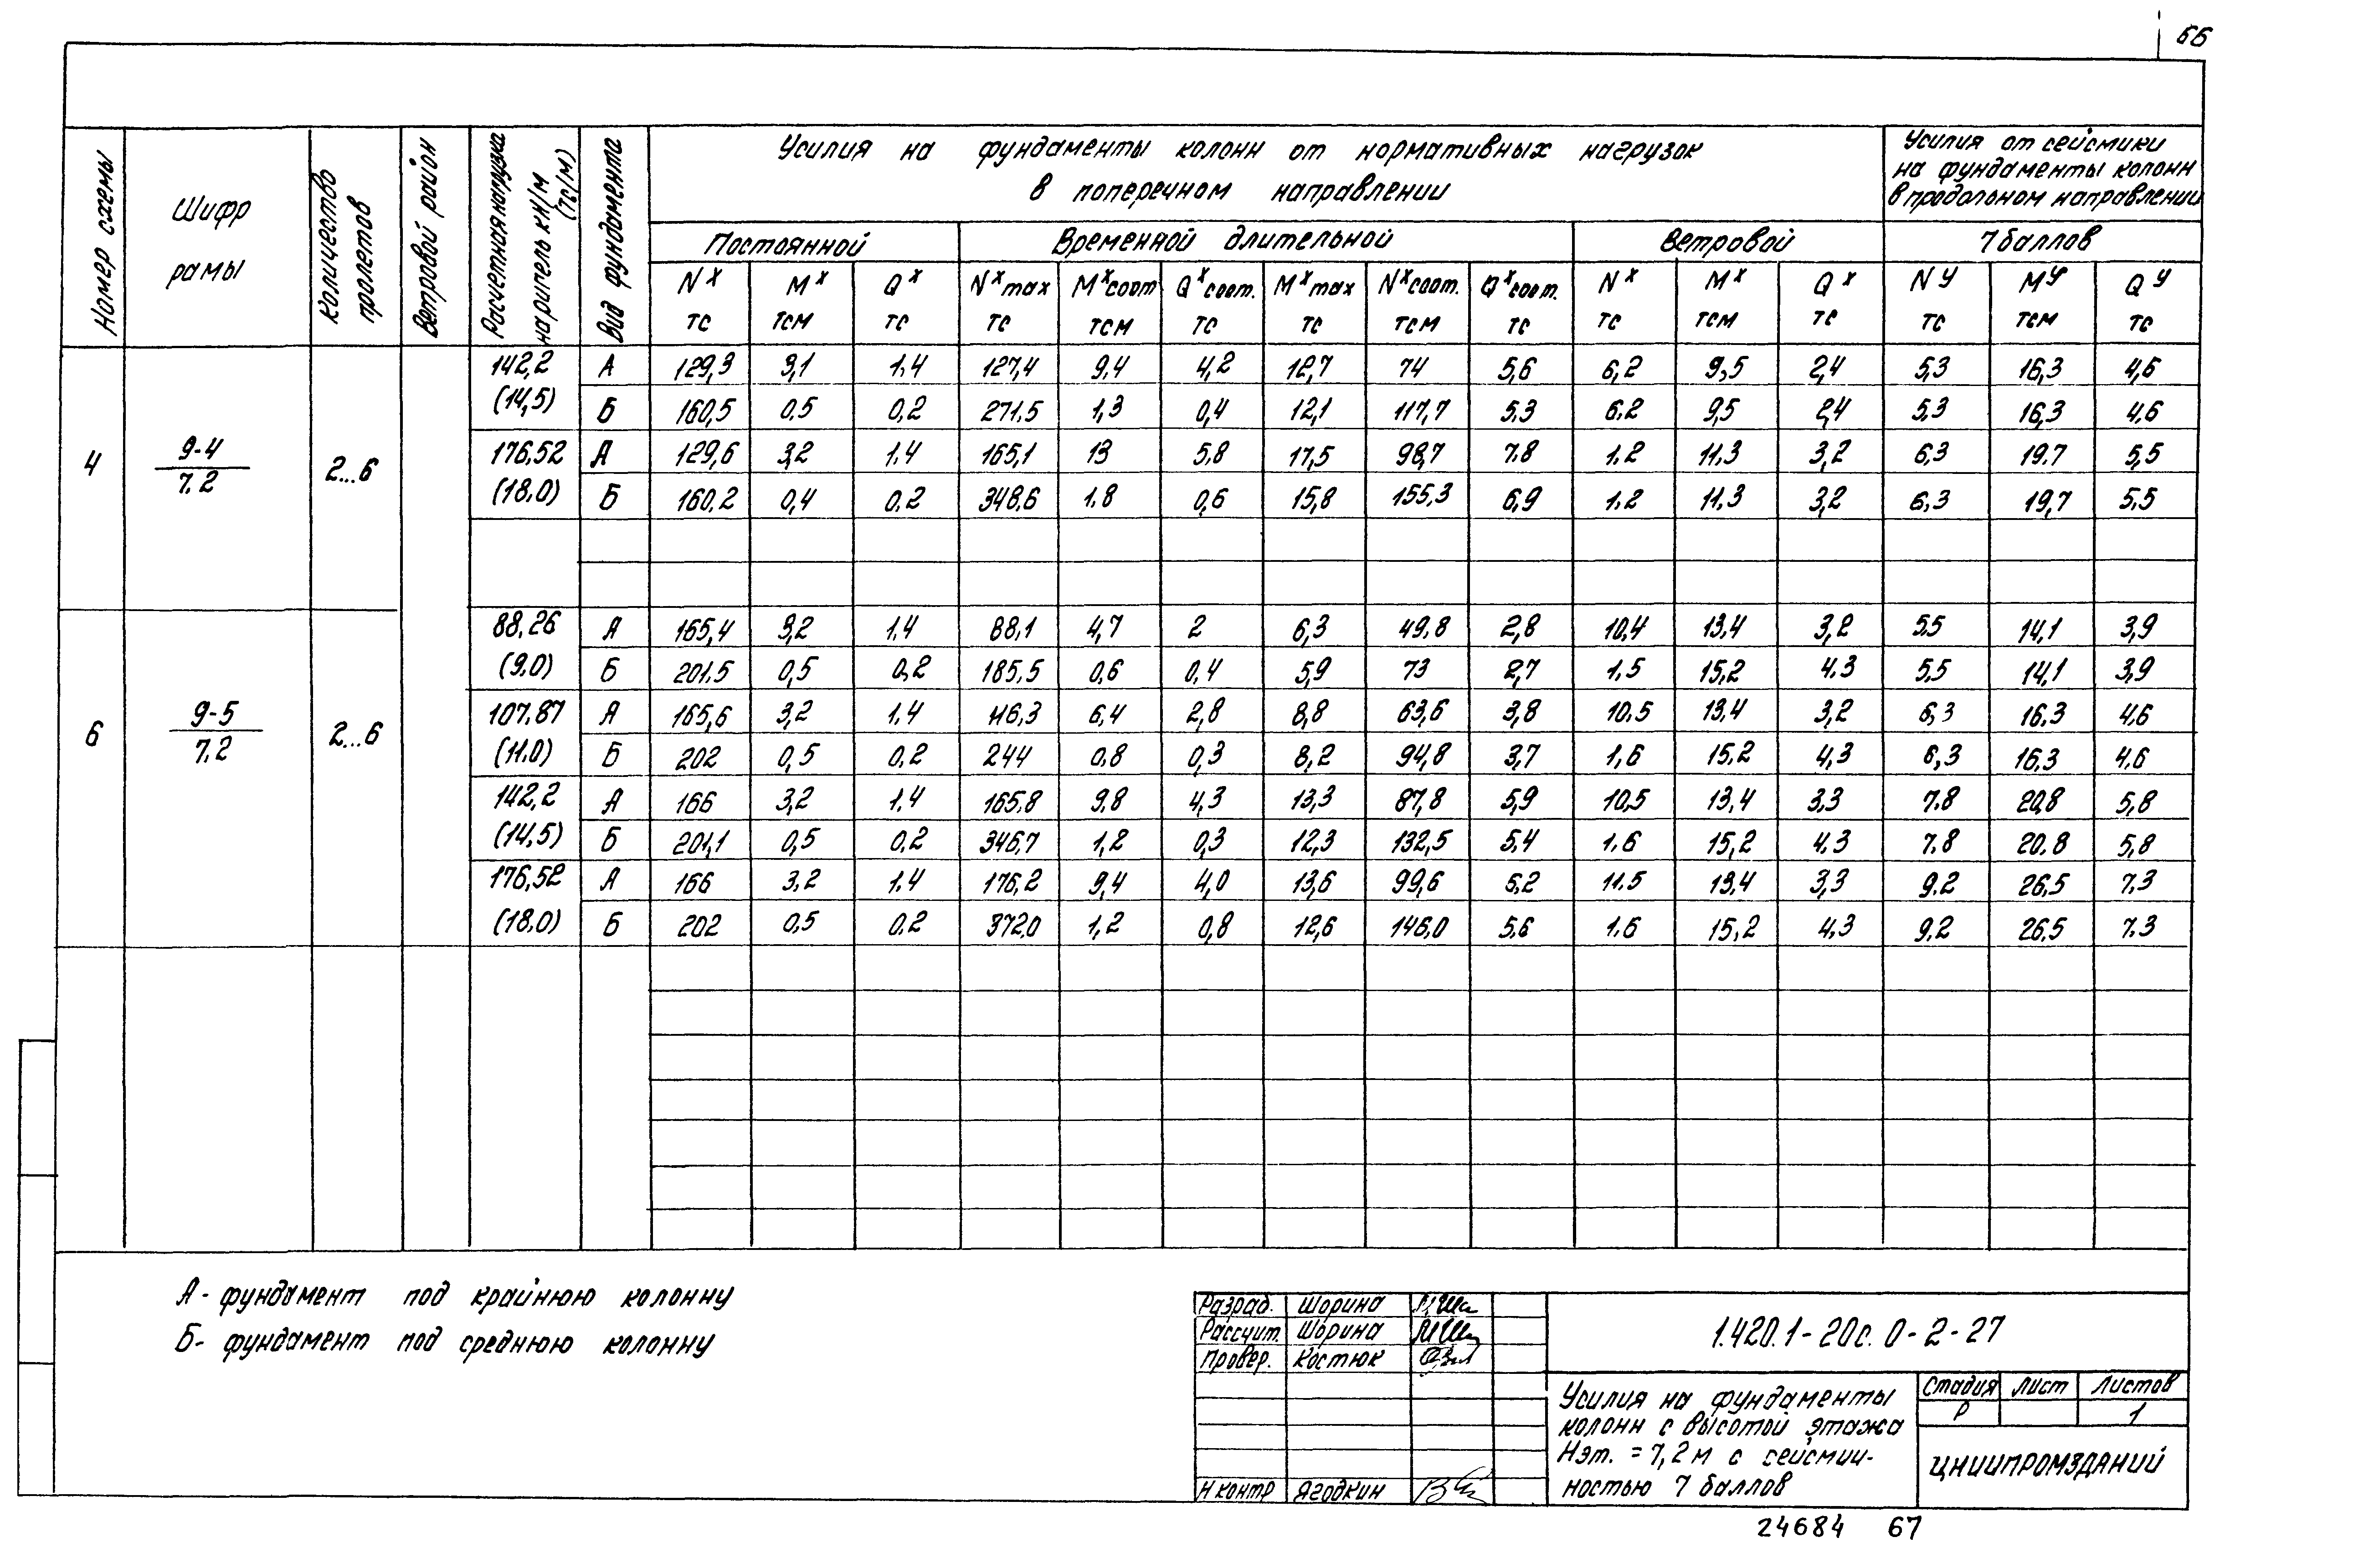 66
Номер схемы
Шифр рамы
Количество пролетов
Ветровой район
Расчетная нагрузка на ригель кН/м (тс/м)
Вид фундамента
Усилия на фундаменты колонн от нормативных нагрузок
в поперечном направлении
Усилия от сейсмики
на фундаменты колонн
в продольном направлении
Постоянной Временной длительной Ветровой 7 баллов
N^x M^x Q^x N^x max M^x соот Q^x соот. M^x max N^x соот. Q^x соот. N^x M^x Q^x N^y M^y Q^y
тс тсм тс тс тсм тс тс тсм тс тс тсм тс тс тсм тс
142,2 А 129,3 3,1 1,4 127,4 9,4 4,2 12,7 74 5,6 6,2 9,5 2,4 5,3 16,3 4,6
(14,5) Б 160,5 0,5 0,2 271,5 1,3 0,4 12,1 117,7 5,3 6,2 9,5 2,4 5,3 16,3 4,6
4 9-4/7.2 2...6
176,52 А 129,6 3,2 1,4 165,1 13 5,8 17,5 98,7 7,8 1,2 11,3 3,2 6,3 19,7 5,5
(18,0) Б 160,2 0,4 0,2 348,6 1,8 0,6 15,8 155,3 6,9 1,2 11,3 3,2 6,3 19,7 5,5
88,26 А 165,4 3,2 1,4 88,1 4,7 2 6,3 49,8 2,8 10,4 13,4 3,2 5,5 14,1 3,9
(9,0) Б 201,5 0,5 0,2 185,5 0,6 0,4 5,9 73 2,7 1,5 15,2 4,3 5,5 14,1 3,9
6 9-5/7,2 2...6
107,87 А 165,6 3,2 1,4 116,3 6,4 2,8 8,8 63,6 3,8 10,5 13,4 3,2 6,3 16,3 4,6
(11,0) Б 202 0,5 0,2 244 0,8 0,3 8,2 94,8 3,7 1,6 15,2 4,3 6,3 16,3 4,6
142,2 А 166 3,2 1,4 165,8 9,8 4,3 13,3 87,8 5,9 10,5 13,4 3,3 7,8 20,8 5,8
(14,5) Б 201,1 0,5 0,2 346,7 1,2 0,3 12,3 132,5 5,4 1,6 15,2 4,3 7,8 20,8 5,8
176,52 А 166 3,2 1,4 176,2 9,4 4,0 13,6 99,6 6,2 11,5 13,4 3,3 9,2 26,5 7,3
(18,0) Б 202 0,5 0,2 372,0 1,2 0,8 12,6 146,0 5,6 1,6 15,2 4,3 9,2 26,5 7,3
А - фундамент под крайнюю колонну
Б - фундамент под среднюю колонну
Разраб. Шорина
Рассчит. Шорина
Провер. Костюк
Н контр Ягодкин
1.420.1-20с.0-2-27
Усилия на фундаменты
колонн с высотой этажа
Нэт. = 7,2 м с сейсмич-
ностью 7 баллов
Стадия Лист Листов
Р 1
ЦНИИПРОМЗДАНИЙ
24684 67